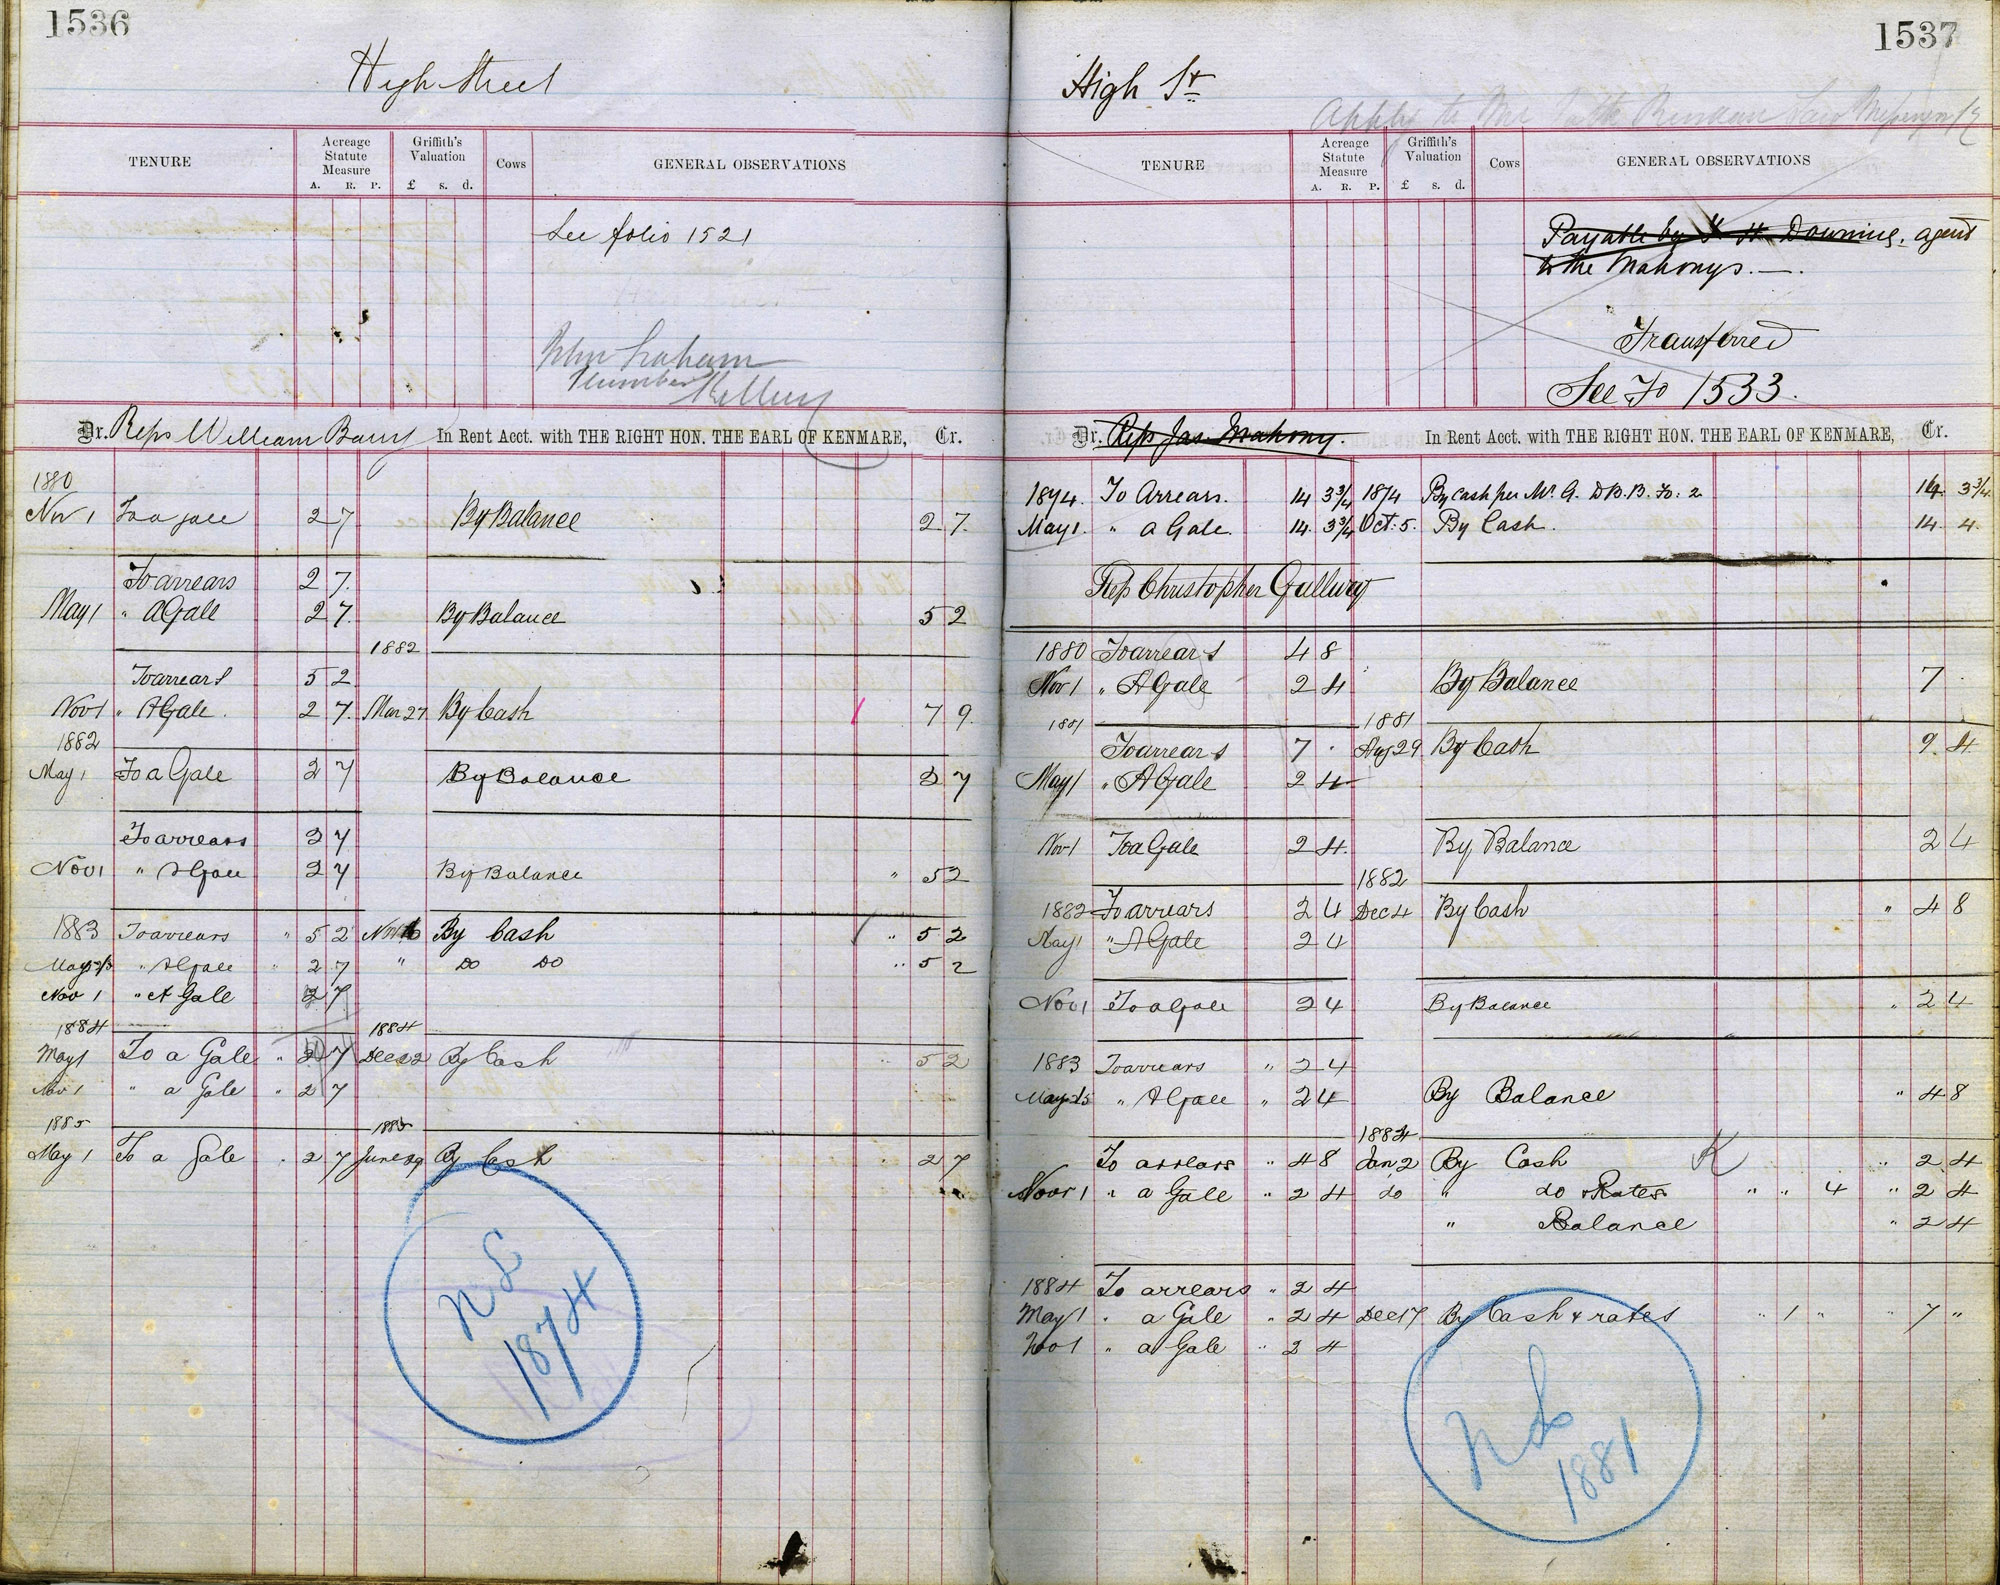 1536
High Street
TENURE
Acreage Statute Measure
A. R. P.
Griffith's Valuation
£ s. d.
Cows
GENERAL OBSERVATIONS
See folio 1521
John Graham
Plumber
Dr. Reps William Barry In Rent Acct. with THE RIGHT HON. THE EARL OF KENMARE, Cr.
1880
Nov 1 To a gale 2 7 By Balance 2 7.
To arrears 2 7.
May 1 " A Gale 2 7. By Balance 5 2
1882
To arrears 5 2
Nov 1 " A Gale. 2 7. Mar 27 By Cash 7 9.
1882
May 1 To a Gale 2 7 By Balance 2 7
To arrears 2 7
Nov 1 " A Gale 2 7 By Balance " 5 2
1883 To arrears " 5 2 Nov 16 By Cash " 5 2
May " A Gale " 2 7 " Do Do " 5 2
Nov 1 " A Gale 2 7
1884 1884
May 1 To a Gale " 2 7 Dec 22 By Cash " 5 2
Nov 1 " a Gale " 2 7
1885 1885
May 1 To a Gale " 2 7 June 29 By Cash " 2 7
NL
1874
1537
High St
Apply to Mr
TENURE
Acreage Statute Measure
A. R. P.
Griffith's Valuation
£ s. d.
Cows
GENERAL OBSERVATIONS
Payable by H Downing. agent
to the Mahonys. —
Transferred
See Fo 1533.
Dr. Reps Jas. Mahony. In Rent Acct. with THE RIGHT HON. THE EARL OF KENMARE, Cr.
1874. To Arrears. 14 3¾ 1874 By Cash per Mr. G. D B.B. Fo: 2 14. 3¾
May 1. " a Gale. 14. 3¾ Oct: 5. By Cash. 14. 4.
Reps Christopher Gallwey
1880 To arrears 4 8
Nov 1 " A Gale 2 4 By Balance 7 .
1881 1881
To arrears 7 . Aug 29 By Cash 9. 4
May 1 " A Gale 2 4
Nov 1 To a Gale 2 4. By Balance 2 4
1882
1882 To arrears 2 4 Dec 4 By Cash " 4 8
May 1 " A Gale 2 4
Nov 1 To a Gale 2 4 By Balance " 2 4
1883 To arrears " 2 4
May " A Gale " 2 4 By Balance " 4 8
1884
To arrears " 4 8 Jan 2 By Cash K " 2 4
Novr 1 " a Gale " 2 4 do " do & Rates " " 4 " 2 4
" Balance " 2 4
1884 To arrears " 2 4
May 1 " a Gale " 2 4 Dec 17 By Cash & rates " 1 " " 7 "
Nov 1 " a Gale " 2 4
NL
1881